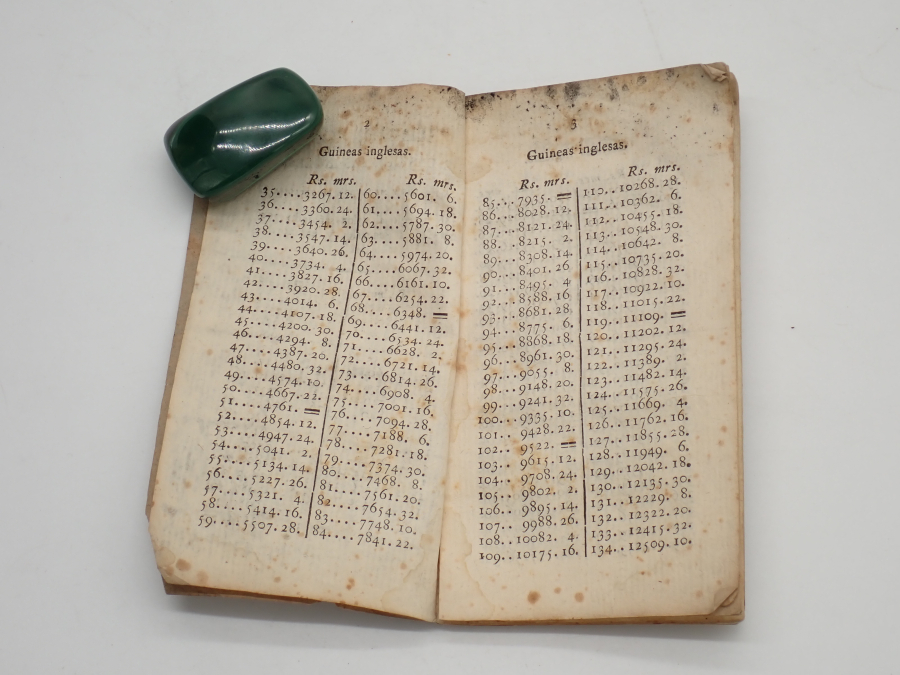 2
Guineas inglesas.
Rs. mrs.
35....3267.12.
36....3360.24.
37....3454. 2.
38....3547.14.
39....3640.26.
40....3734. 4.
41....3827.16.
42....3920.28.
43....4014. 6.
44....4107.18.
45....4200.30.
46....4294. 8.
47....4387.20.
48....4480.32.
49....4574.10.
50....4667.22.
51....4761. =
52....4854.12.
53....4947.24.
54....5041. 2.
55....5134.14.
56....5227.26.
57....5321. 4.
58....5414.16.
59....5507.28.
Rs. mrs.
60....5601. 6.
61....5694.18.
62....5787.30.
63....5881. 8.
64....5974.20.
65....6067.32.
66....6161.10.
67....6254.22.
68....6348. =
69....6441.12.
70....6534.24.
71....6628. 2.
72....6721.14.
73....6814.26.
74....6908. 4.
75....7001.16.
76....7094.28.
77....7188. 6.
78....7281.18.
79....7374.30.
80....7468. 8.
81....7561.20.
82....7654.32.
83....7748.10.
84....7841.22.
3
Guineas inglesas.
Rs. mrs.
85...7935. =
86...8028.12.
87...8121.24.
88...8215. 2.
89...8308.14.
90...8401.26
91...8495. 4
92...8588.16
93...8681.28.
94...8775. 6.
95...8868.18.
96...8961.30.
97...9055. 8.
98...9148.20.
99...9241.32.
100...9335.10.
101...9428.22.
102...9522. =
103...9615.12.
104...9708.24.
105...9802. 2.
106...9895.14.
107...9988.26.
108..10082. 4.
109..10175.16.
Rs. mrs.
110..10268.28.
111..10362. 6.
112..10455.18.
113..10548.30.
114..10642. 8.
115..10735.20.
116..10828.32.
117..10922.10.
118..11015.22.
119..11109. =
120..11202.12.
121..11295.24.
122..11389. 2.
123..11482.14.
124..11575.26.
125..11669. 4.
126..11762.16.
127..11855.28.
128..11949. 6.
129..12042.18.
130..12135.30.
131..12229. 8.
132..12322.20.
133..12415.32.
134..12509.10.